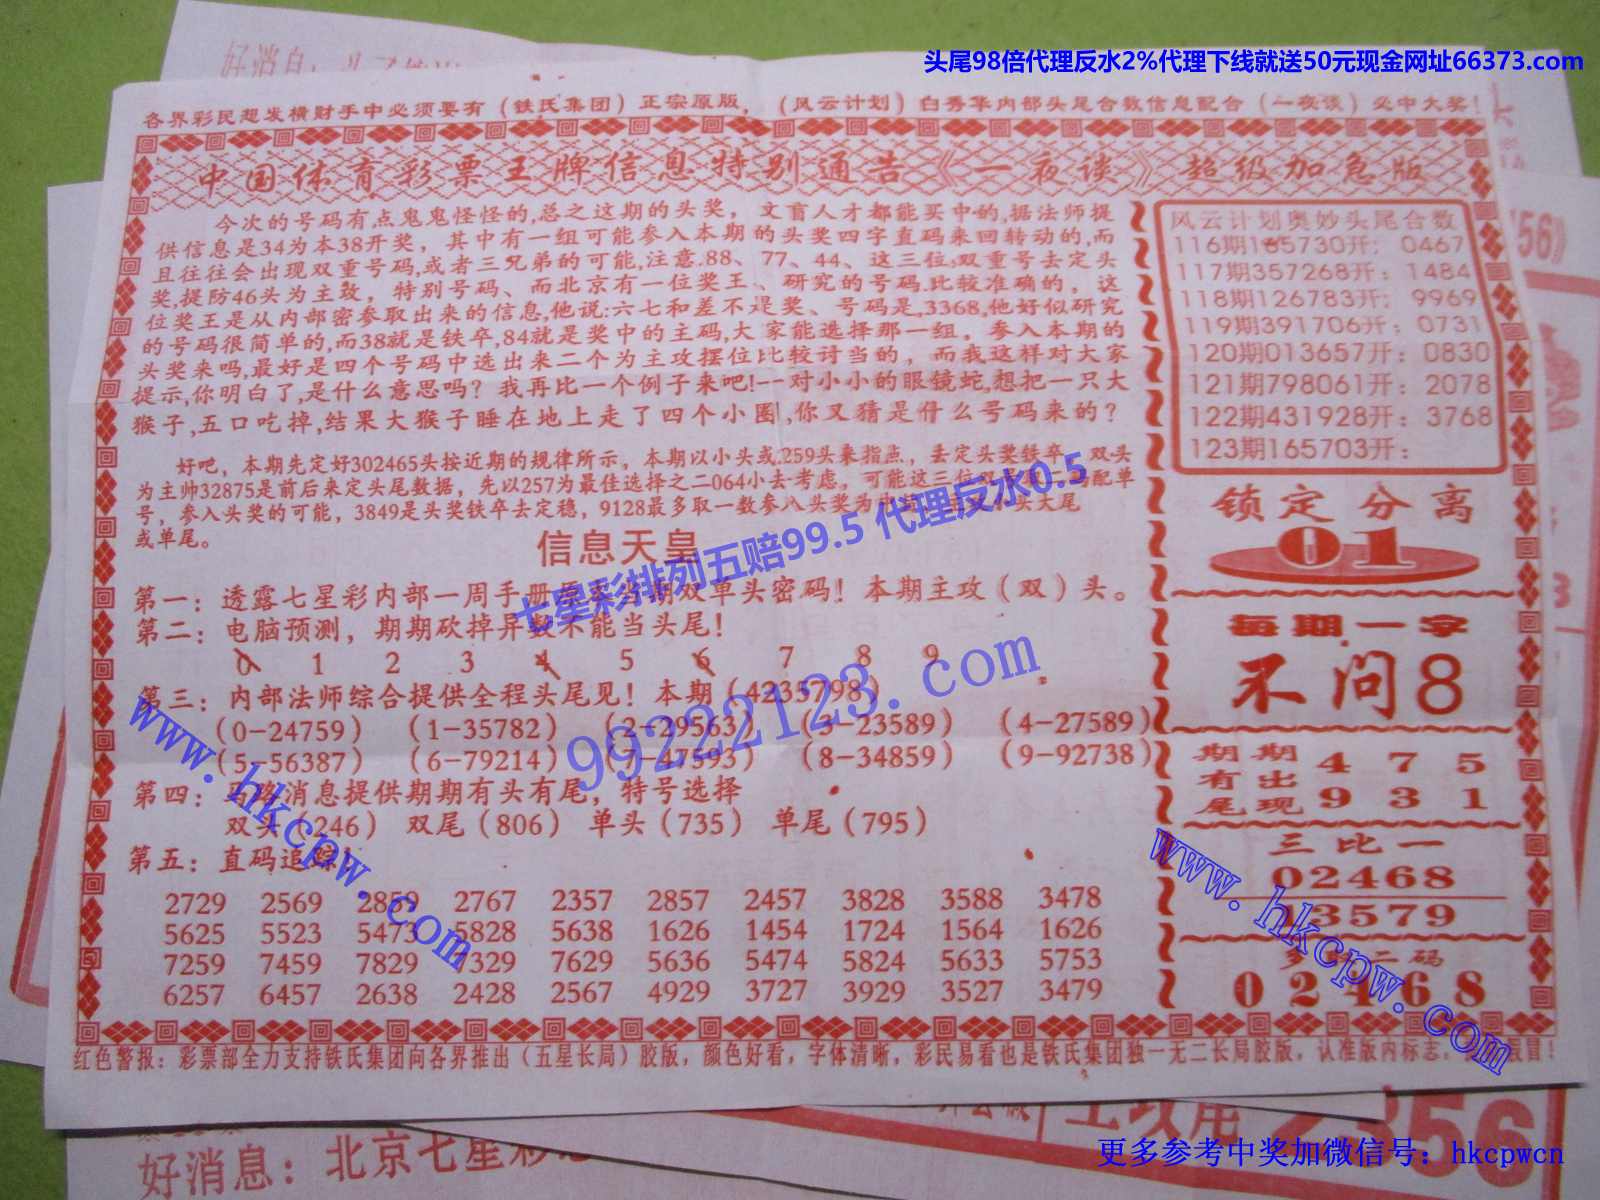 头尾98倍代理反水2%代理下线就送50元现金网址66373.com
好消息:
各界彩民想发横财手中必须要有（铁氏集团）正宗原版，（风云计划）白秀华内部头尾合数信息配合（一夜谈）必中大奖！
中国体育彩票王牌信息特别通告《一夜谈》超级加急版
今次的号码有点鬼鬼怪怪的,总之这期的头奖，文盲人才都能买中的,据法师提
供信息是34为本38开奖，其中有一组可能参入本期的头奖四字直码来回转动的,而
且往往会出现双重号码,或者三兄弟的可能,注意.88、77、44、这三位,双重号去定头
奖,提防46头为主攻，特别号码、而北京有一位奖王、研究的号码.比较准确的，这
位奖王是从内部密参取出来的信息,他说:六七和差不是奖、号码是,3368,他好似研究
的号码很简单的,而38就是铁卒,84就是奖中的主码,大家能选择那一组，参入本期的
头奖来吗,最好是四个号码中选出来二个为主攻摆位比较讨当的，而我这样对大家
提示,你明白了,是什么意思吗？我再比一个例子来吧!一对小小的眼镜蛇,想把一只大
猴子,五口吃掉,结果大猴子睡在地上走了四个小圈,你又猜是什么号码来的？
好吧，本期先定好302465头按近期的规律所示，本期以小头或.259头来指点，去定头奖铁卒，双头
为主帅32875是前后来定头尾数据，先以257为最佳选择之二064小去考虑。可能这三位双号取二码配单
号，参入头奖的可能，3849是头奖铁卒去定稳，9128最多取一数参入头奖为 大尾
或单尾。
七星彩排列五赔99.5 代理反水0.5
信息天皇
第一：透露七星彩内部一周手册 当期双单头密码！本期主攻（双）头。
第二：电脑预测，期期砍掉异数不能当头尾！
0 1 2 3 4 5 6 7 8 9
第三：内部法师综合提供全程头尾见！本期（4235798）
（0-24759）（1-35782）（2-29563）（3-23589）（4-27589）
（5-56387）（6-79214）（7-47593）（8-34859）（9-92738）
第四：马路消息提供期期有头有尾，特号选择
双头（246） 双尾（806） 单头（735） 单尾（795）
第五：直码追踪！
2729 2569 2859 2767 2357 2857 2457 3828 3588 3478
5625 5523 5473 5828 5638 1626 1454 1724 1564 1626
7259 7459 7829 7329 7629 5636 5474 5824 5633 5753
6257 6457 2638 2428 2567 4929 3727 3929 3527 3479
99222123.com
www.hkcpw.com
风云计划奥妙头尾合数
116期165730开：0467
117期357268开：1484
118期126783开：9969
119期391706开：0731
120期013657开：0830
121期798061开：2078
122期431928开：3768
123期165703开：
锁定分离
01
每期一字
不问8
期期 475
有出
尾现 931
三比一
02468
13579
二码
02468
www.hkcpw.com
红色警报：彩票部全力支持铁氏集团向各界推出（五星长局）胶版，颜色好看，字体清晰，彩民易看也是铁氏集团独一无二长局胶版，认准版内标志，假冒！
主攻用 2356
好消息：北京七星彩
更多参考中奖加微信号：hkcpwcn
56》